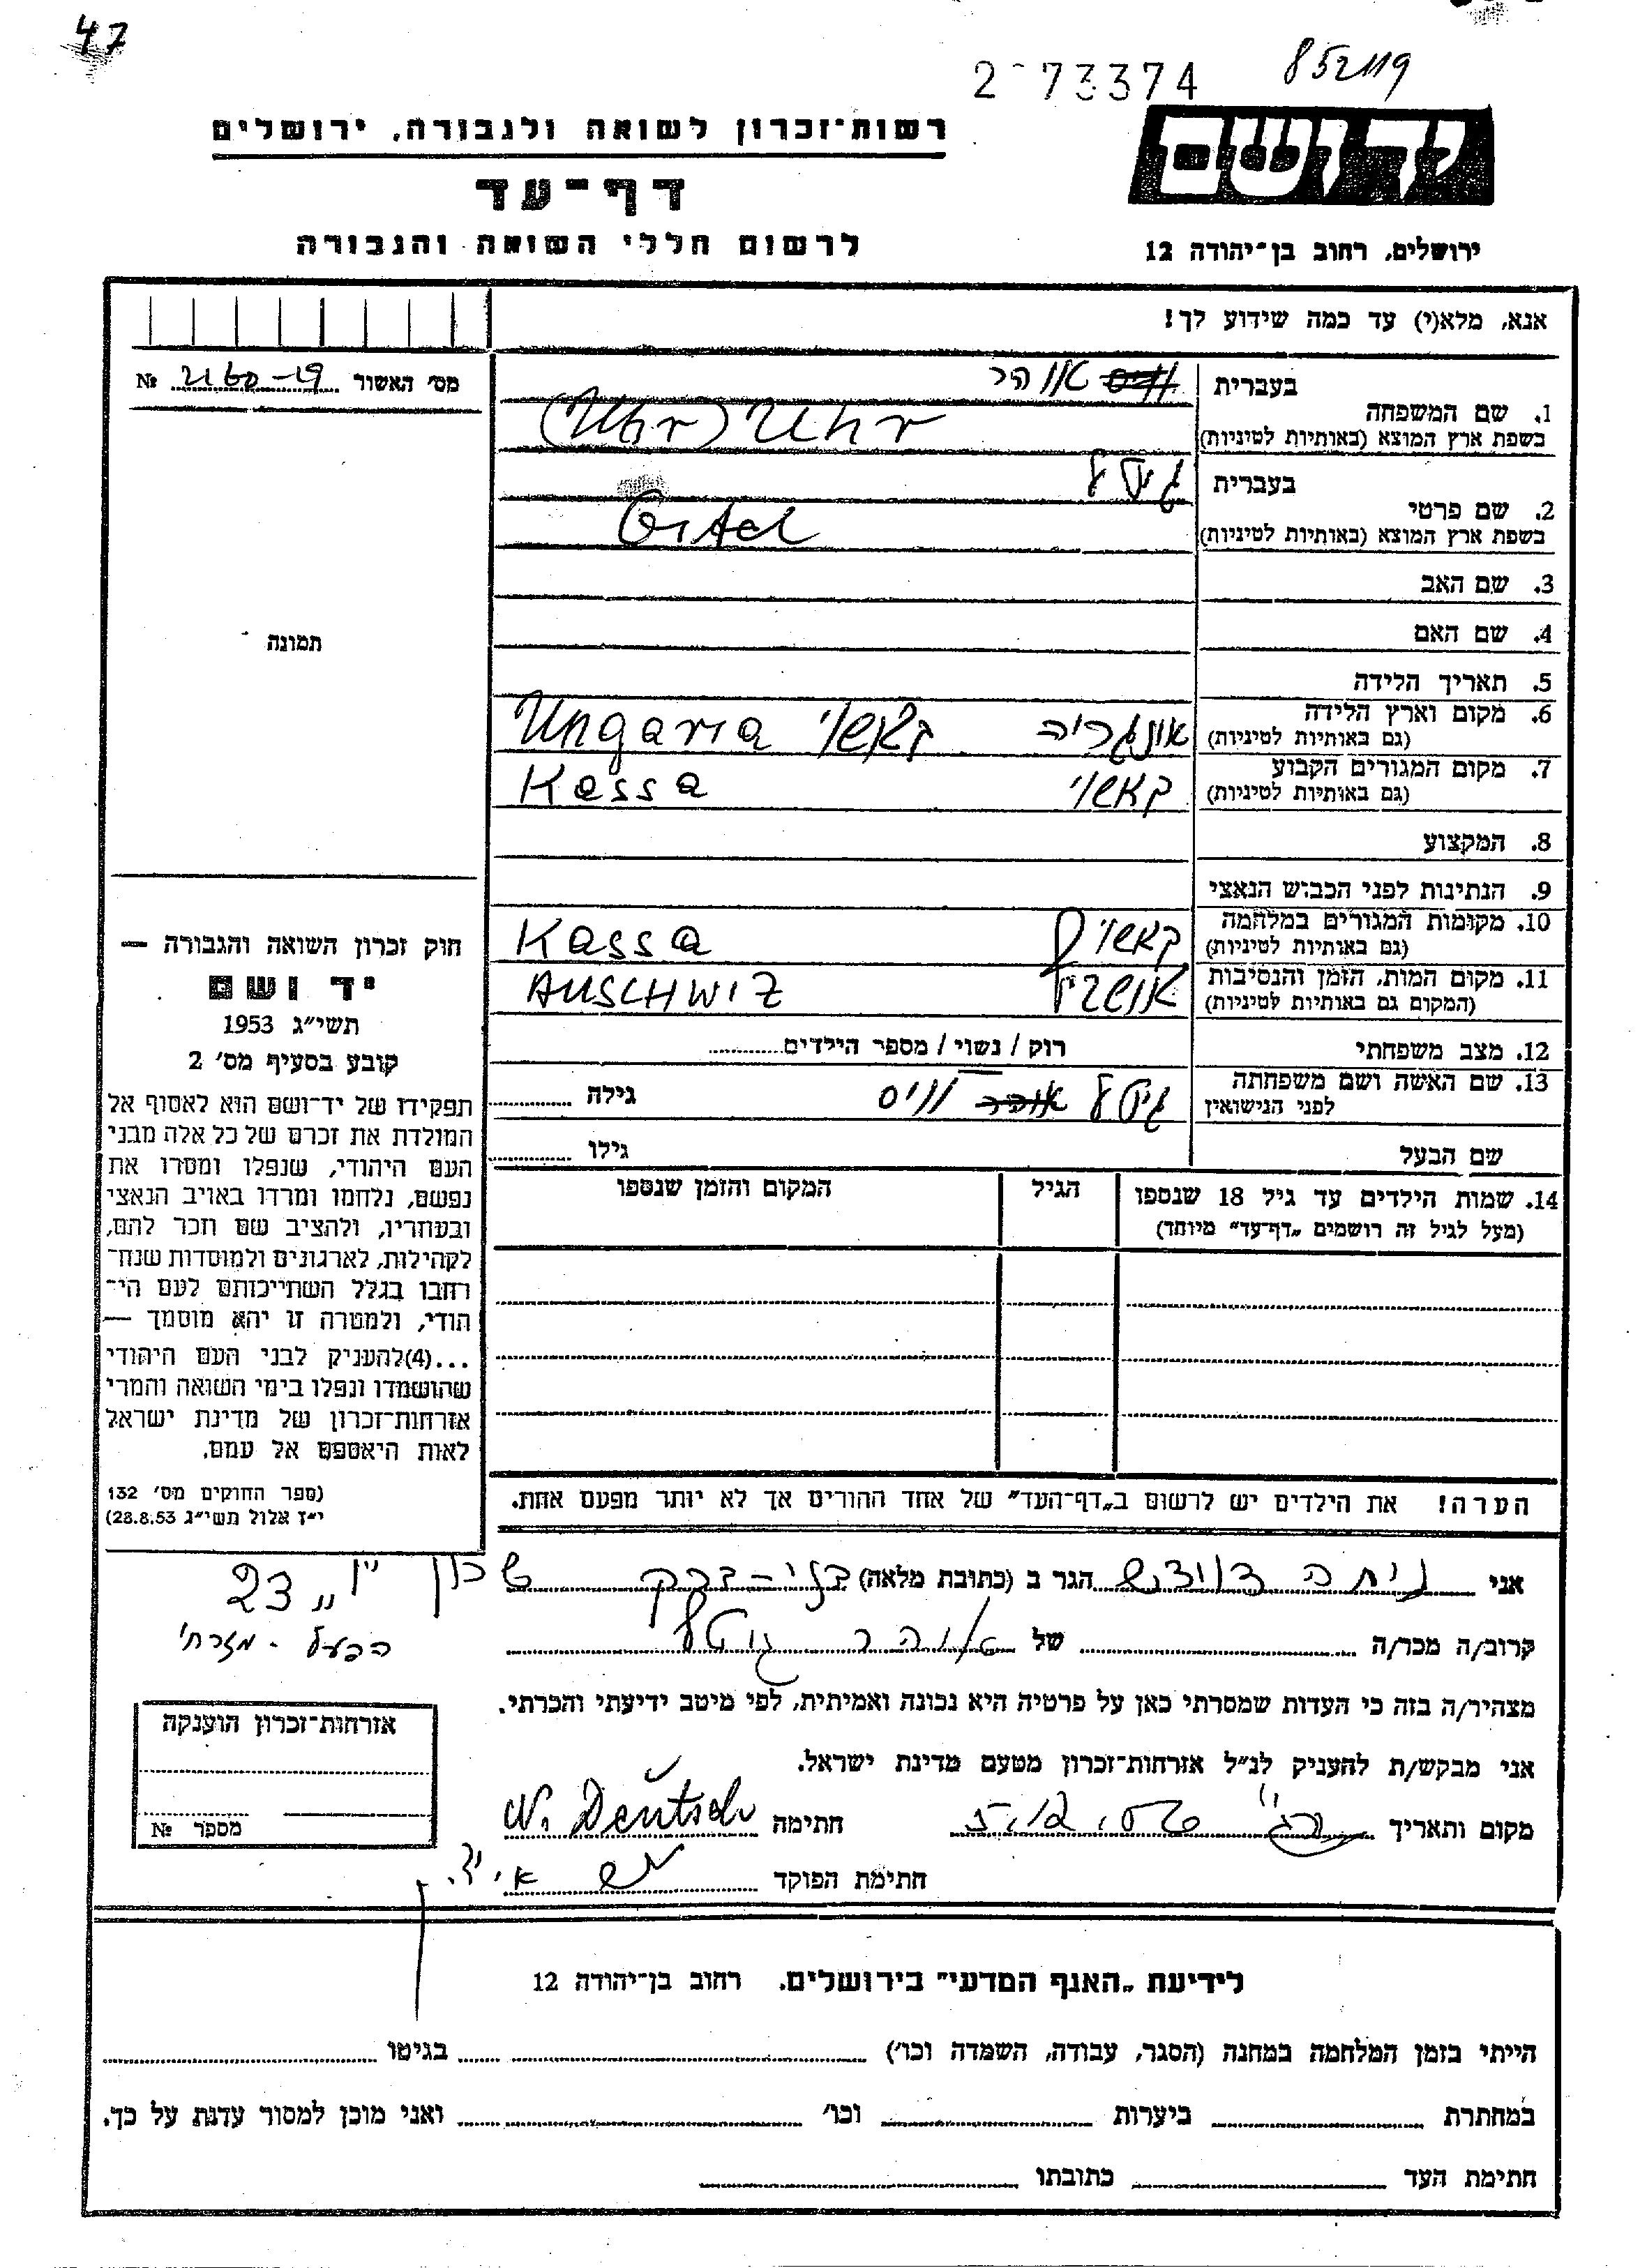 47
2-73374
852119
רשות־זכרון לשואה ולגבורה, ירושלים
יד ושם
דף־עד
לרשום חללי השואה והגבורה
ירושלים, רחוב בן־יהודה 12
אנא, מלא(י) עד כמה שידוע לך!
מס' האשור № 19-
1. שם המשפחה
בעברית אוהר
בשפת ארץ המוצא (באותיות לטיניות) (Uhr) Uhr
2. שם פרטי
בעברית
בשפת ארץ המוצא (באותיות לטיניות) Gitel
3. שם האב
4. שם האם
תמונה
5. תאריך הלידה
6. מקום וארץ הלידה
(גם באותיות לטיניות) אונגריה קאשוי Ungaria
7. מקום המגורים הקבוע
(גם באותיות לטיניות) קאשוי Kassa
8. המקצוע
9. הנתינות לפני הכבוש הנאצי
10. מקומות המגורים במלחמה
(גם באותיות לטיניות) קאשוי Kassa
11. מקום המות, הזמן והנסיבות
(המקום גם באותיות לטיניות) אושביץ AUSCHWIZ
12. מצב משפחתי רוק / נשוי / מספר הילדים
13. שם האשה ושם משפחתה
לפני הנישואין גיטל אוהר ווייס גילה
שם הבעל גילו
14. שמות הילדים עד גיל 18 שנספו הגיל המקום והזמן שנספו
(מעל לגיל זה רושמים „דף־עד" מיוחד)
חוק זכרון השואה והגבורה —
יד ושם
תשי"ג 1953
קובע בסעיף מס' 2
תפקידו של יד־ושם הוא לאסוף אל
המולדת את זכרם של כל אלה מבני
העם היהודי, שנפלו ומסרו את
נפשם, נלחמו ומרדו באויב הנאצי
ובעוזריו, ולהציב שם וזכר להם,
לקהילות, לארגונים ולמוסדות שנח־
רחבו בגלל השתייכותם לעם הי־
הודי, ולמטרה זו יהא מוסמך —
...(4) להעניק לבני העם היהודי
שהושמדו ונפלו בימי השואה והמרי
אזרחות־זכרון של מדינת ישראל
לאות היאספם אל עמם.
(ספר החוקים מס' 132
י"ז אלול תשי"ג 28.8.53)
הערה! את הילדים יש לרשום ב„דף־העד" של אחד ההורים אך לא יותר מפעם אחת.
אני דויטש הגר ב (כתובת מלאה) בני-ברק שכון 23
הפועל - מזרחי
קרוב/ה מכר/ה של אוהר גיטל
מצהיר/ה בזה כי העדות שמסרתי כאן על פרטיה היא נכונה ואמיתית, לפי מיטב ידיעתי והכרתי.
אני מבקש/ת להעניק לנ"ל אזרחות־זכרון מטעם מדינת ישראל.
מקום ותאריך חתימה N. Deutsch
חתימת הפוקד
אזרחות־זכרון הוענקה
מספר №
לידיעת „האגף המדעי" בירושלים. רחוב בן־יהודה 12
הייתי בזמן המלחמה במחנה (הסגר, עבודה, השמדה וכו') בגיטו
במחתרת ביערות וכו' ואני מוכן למסור עדות על כך.
חתימת העד כתובתו